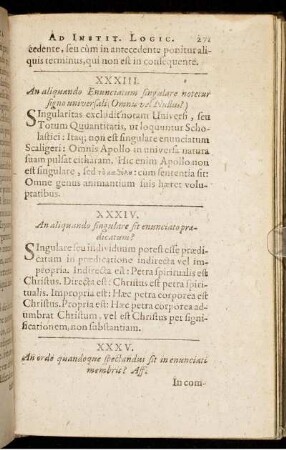 AD INSTIT. LOGIC. 271
cedente, seu cùm in antecedente ponitur ali-
quis terminus, qui non est in consequente.
XXXIII.
An aliquando Enunciatum singulare notetur
signo universali, Omnis vel Nullus?
SIngularitas excludit notam Universi, seu
Totum Qquantitatis, ut loquuntur Scho-
lastici: Itaq; non est singulare enunciatum
Scaligeri: Omnis Apollo in universa natura
suam pulsat citharam. Hic enim Apollo non
est singulare, sed : cum sententia sit:
Omne genus animantium suis hæret volu-
ptatibus.
XXXIV.
An aliquando singulare sit enunciato præ-
dicatum?
SIngulare seu individuum potest esse prædi-
catum in prædicatione indirecta vel im-
propria. Indirecta est: Petra spiritualis est
Christus. Directa est: Christus est petra spiri-
tualis. Impropria est: Hæc petra corporea est
Christus. Propria est: Hæc petra corporea ad-
umbrat Christum, vel est Christus per signi-
ficationem, non substantiam.
XXXV.
An ordo quandoque spectandus sit in enunciati
membris? Aff.
In com-